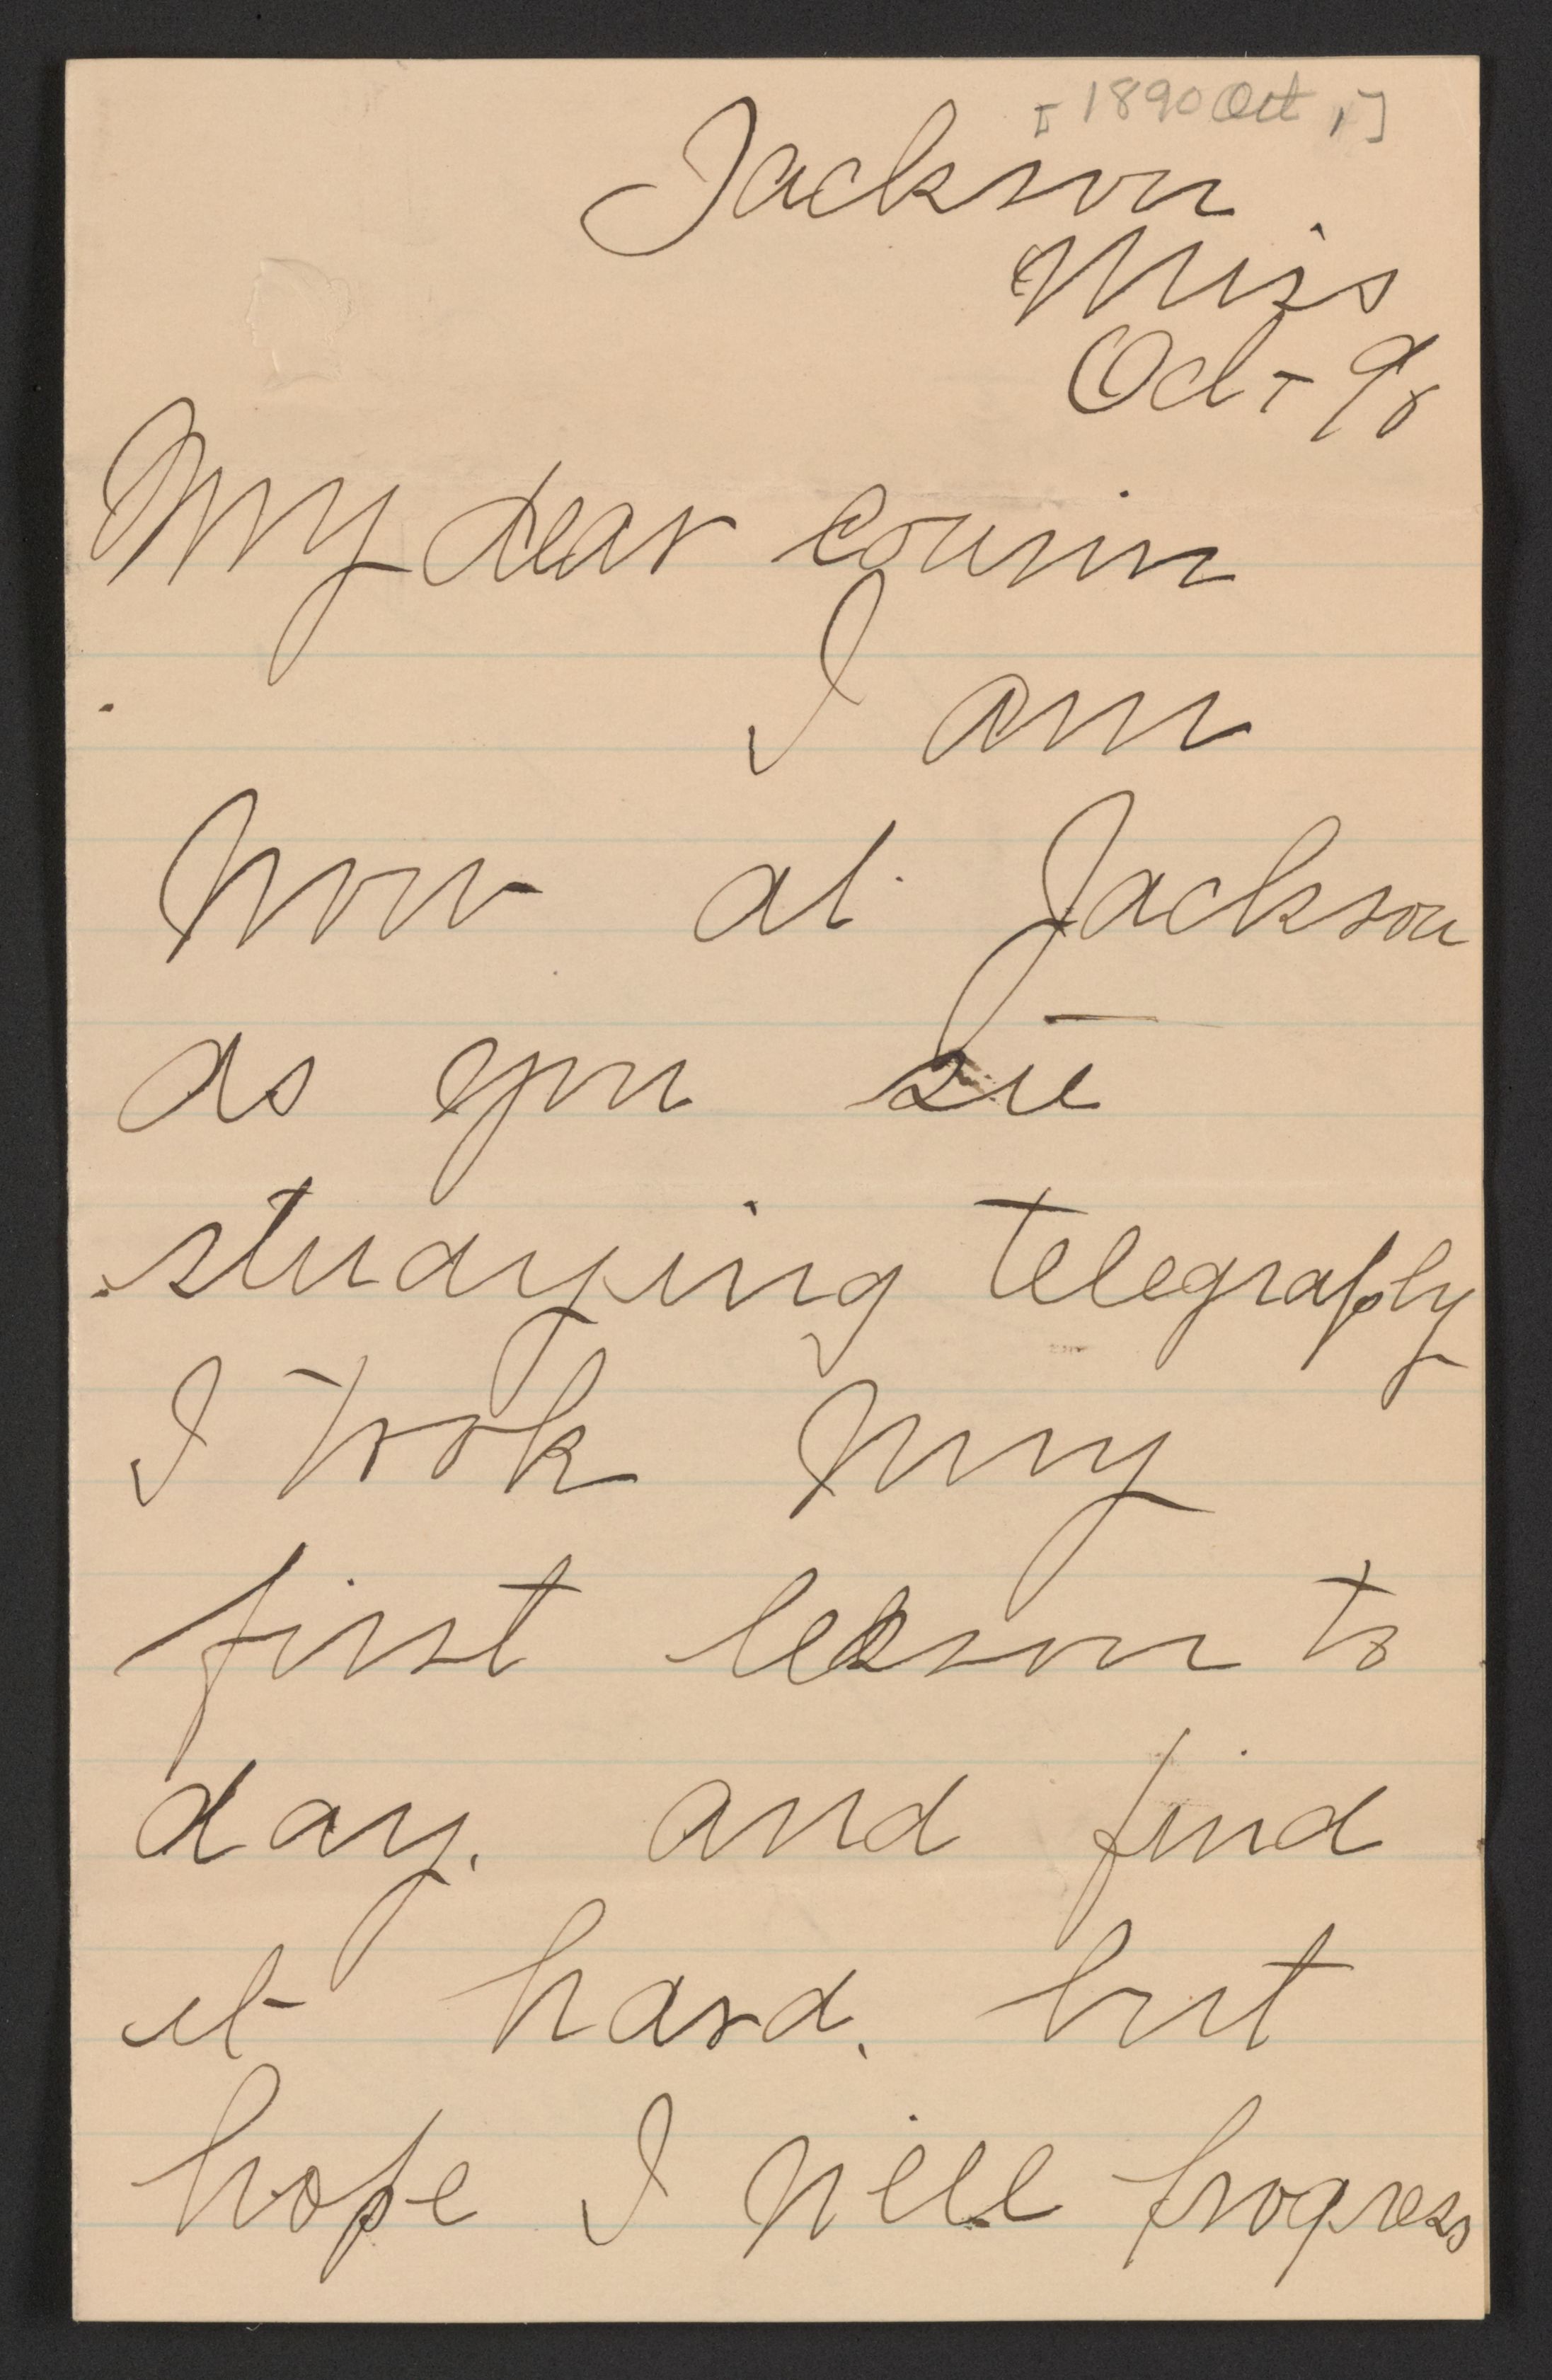 [1890 Oct,]
Jackson
Miss
Oct - 90
My dear cousin
I am
now at Jackson
as you see
studying telegraphy
I took my
first lesson to
day. and find
it hard, but
hope I will progress